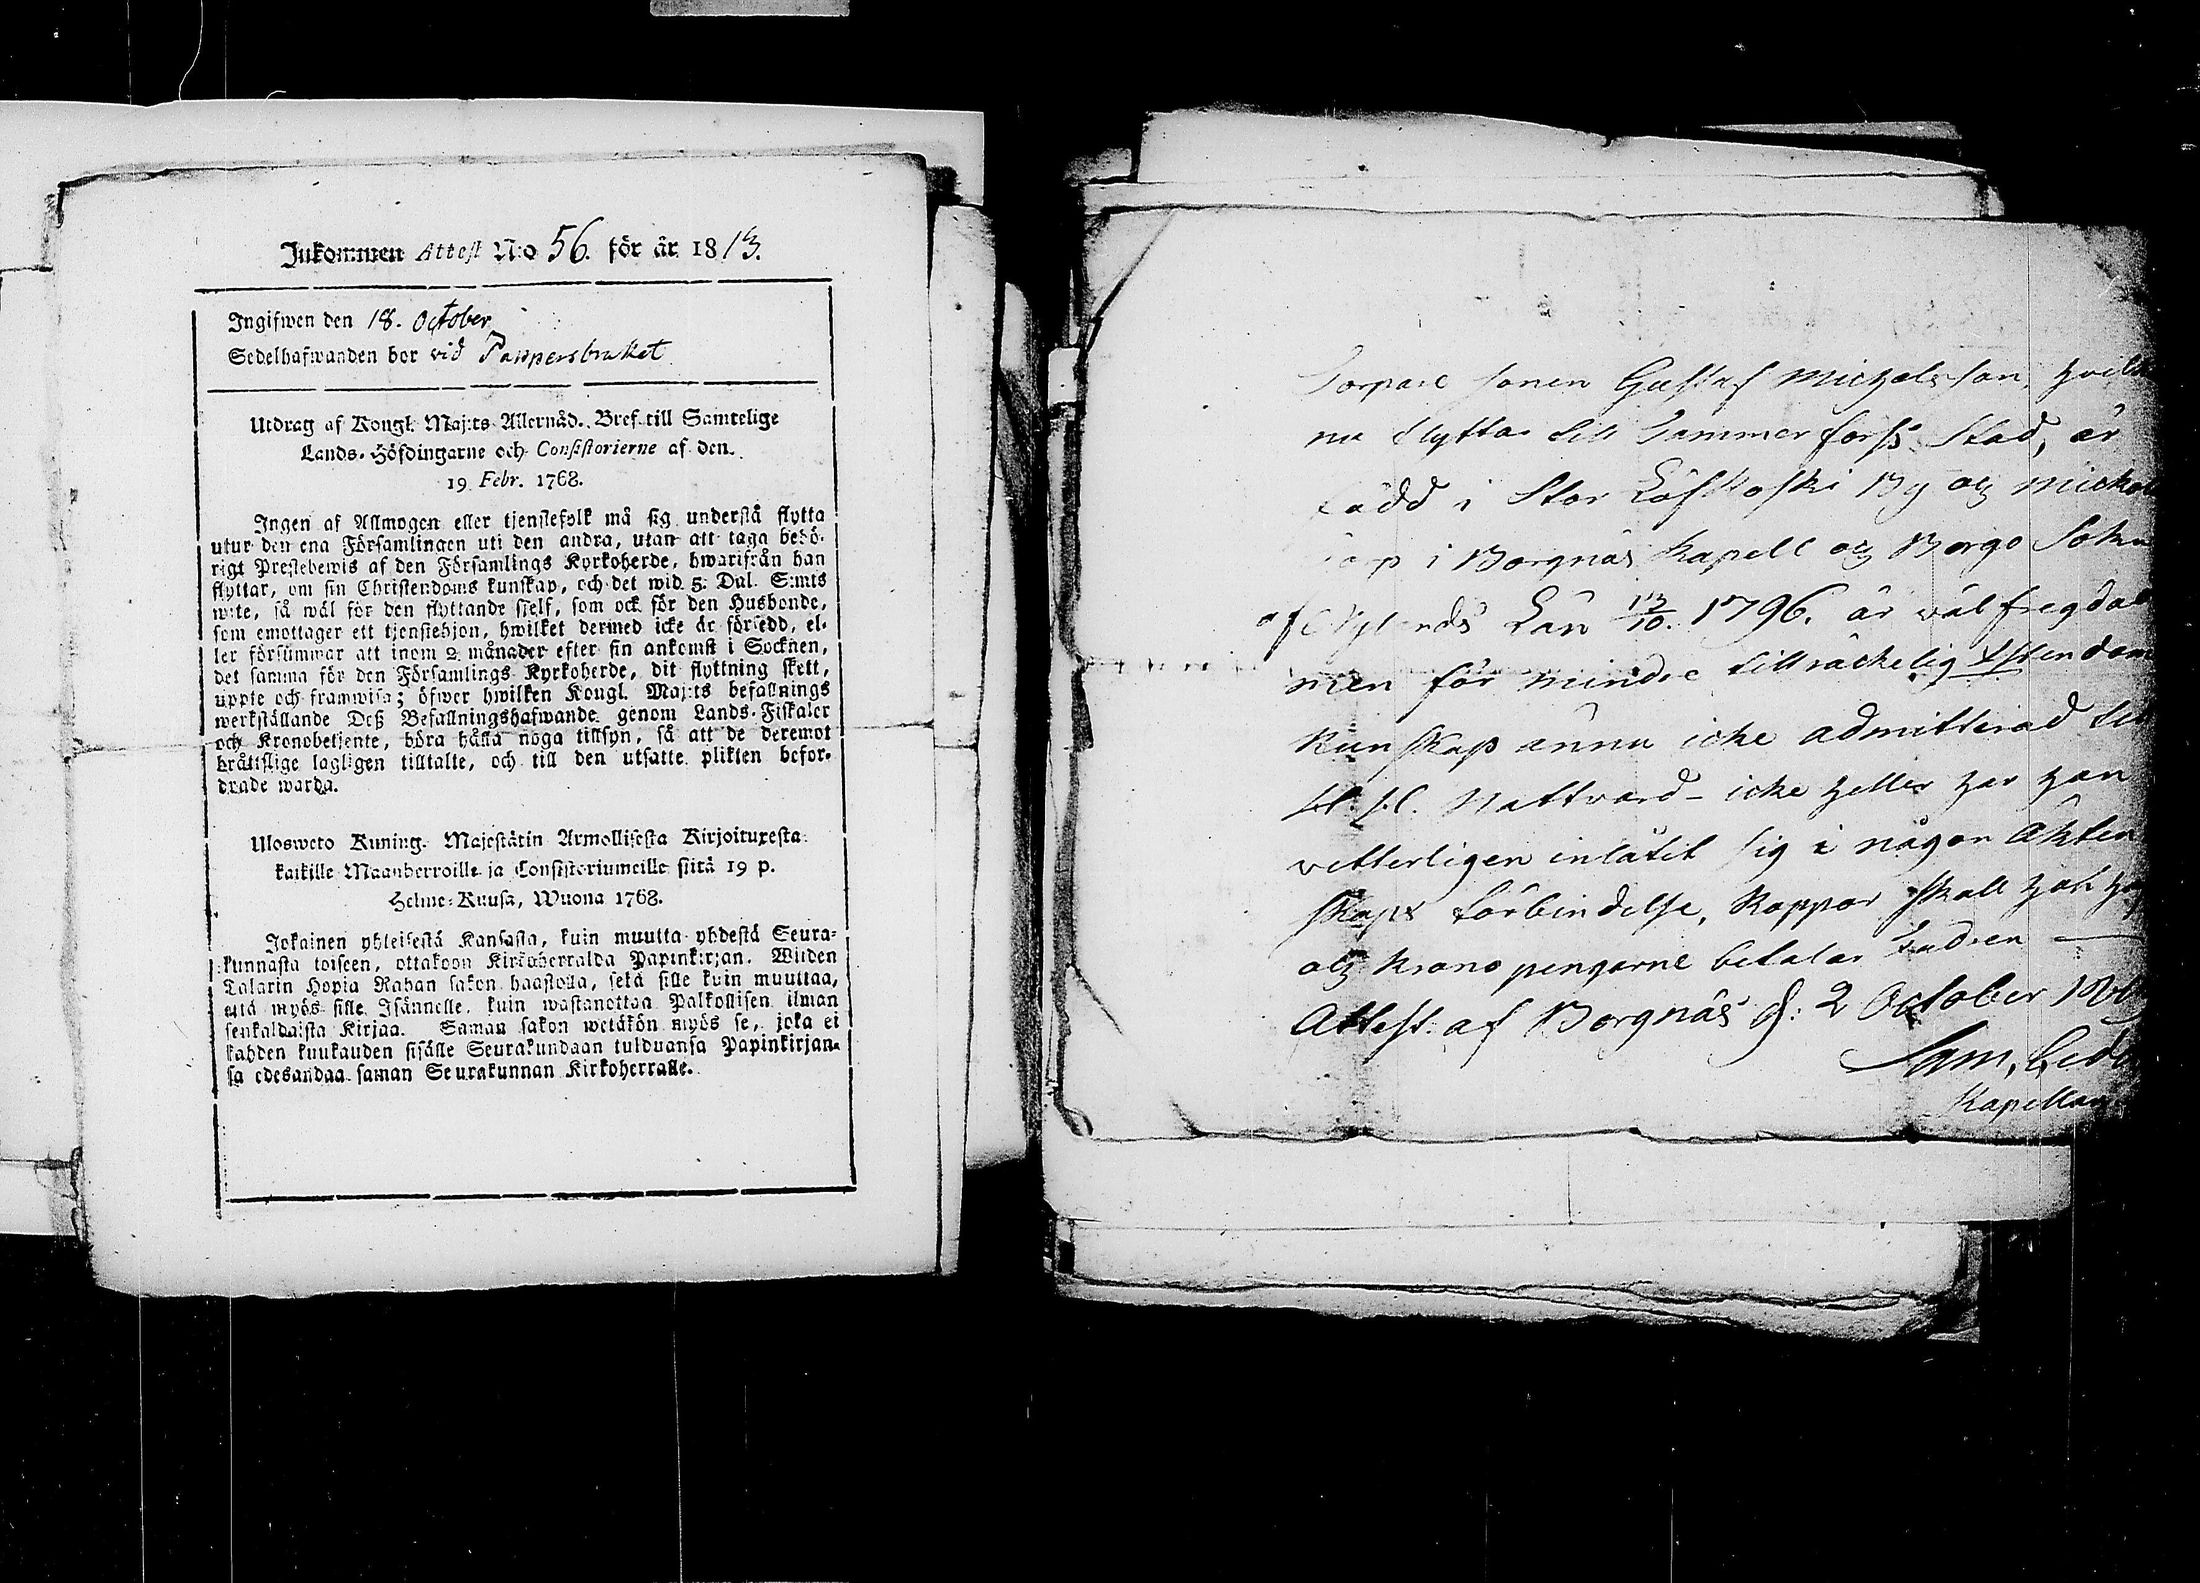 Inkommen Attest N:o 56. för år 1813.
Ingifwen den 18. October
Sedelhafwanden bor vid Pappersbruket
Utdrag af Kongl. Maj:ts Allernåd. Bref till Samtelige
Lands-Höfdingarne och Consistorierne af den
19 Febr. 1768.
Ingen af Allmogen eller tjenstefolk må sig understå flytta
utur den ena Församlingen uti den andra, utan att taga behö-
rigt Prestebewis af den Församlings Kyrkoherde, hwarifrån han
flyttar, om sin Christendoms kunskap, och det wid 5: Dal. S:mts
wite, så wäl för den flyttande sielf, som ock för den Husbonde,
som emottager ett tjenstehjon, hwilket dermed icke är försedd, el-
ler försummar att inom 2 månader efter sin ankomst i Socknen,
det samma för den Församlings Kyrkoherde, dit flyttning skett,
uppte och framwisa; öfwer hwilken Kongl. Maj:ts befallnings
werkställande Deß Befallningshafwande genom Lands-Fiskaler
och Kronobetjente, böra hålla noga tillsyn, så att de deremot
brätislige lagligen tilltalte, och till den utsatte plikten befor-
drade warda.
Ulosweto Kuning. Majestätin Armollisesta Kirjoituxesta
kaikille Maanherroille ja Consistoriumeille siitä 19 p.
Helme-Kuusa, Wuona 1768.
Jokainen yhteisestä Kansasta, kuin muutta yhdestä Seura-
kunnasta toiseen, ottakoon Kirkoherralda Papinkirjan. Wijden
Talarin Hopia Rahan sakon haastolla, sekä sille kuin muuttaa,
että myös sille Isännelle, kuin wastanottaa Palkollisen ilman
senkaldaista Kirjaa. Saman sakon wetäkön myös se, joka ei
kahden kuukauden sisälle Seurakundaan tulduansa Papinkirjan-
sa edesandaa saman Seurakunnan Kirkoherralle.
Torpare sonen Gustaf Michelsson, hvilk
nu flyttar till Tammerforss Stad, är
född i Stor Löfkoski By och Mickel
torp i Borgnäs Kapell och Borgo Sokn
af Nylands Län 13/10. 1796. är väl fregdad
men för mindre tillräckelig Xstendom
kunskap ännu icke admitterad till
H. H. Nattvard - icke heller har han
vetterligen inlåtit sig i någon Äkten
skaps förbindelse, Koppor skall han haf
och krono pengarne betalar Fadren
Attest. af Borgnäs d: 2 October 18
Sam,
Kapellan